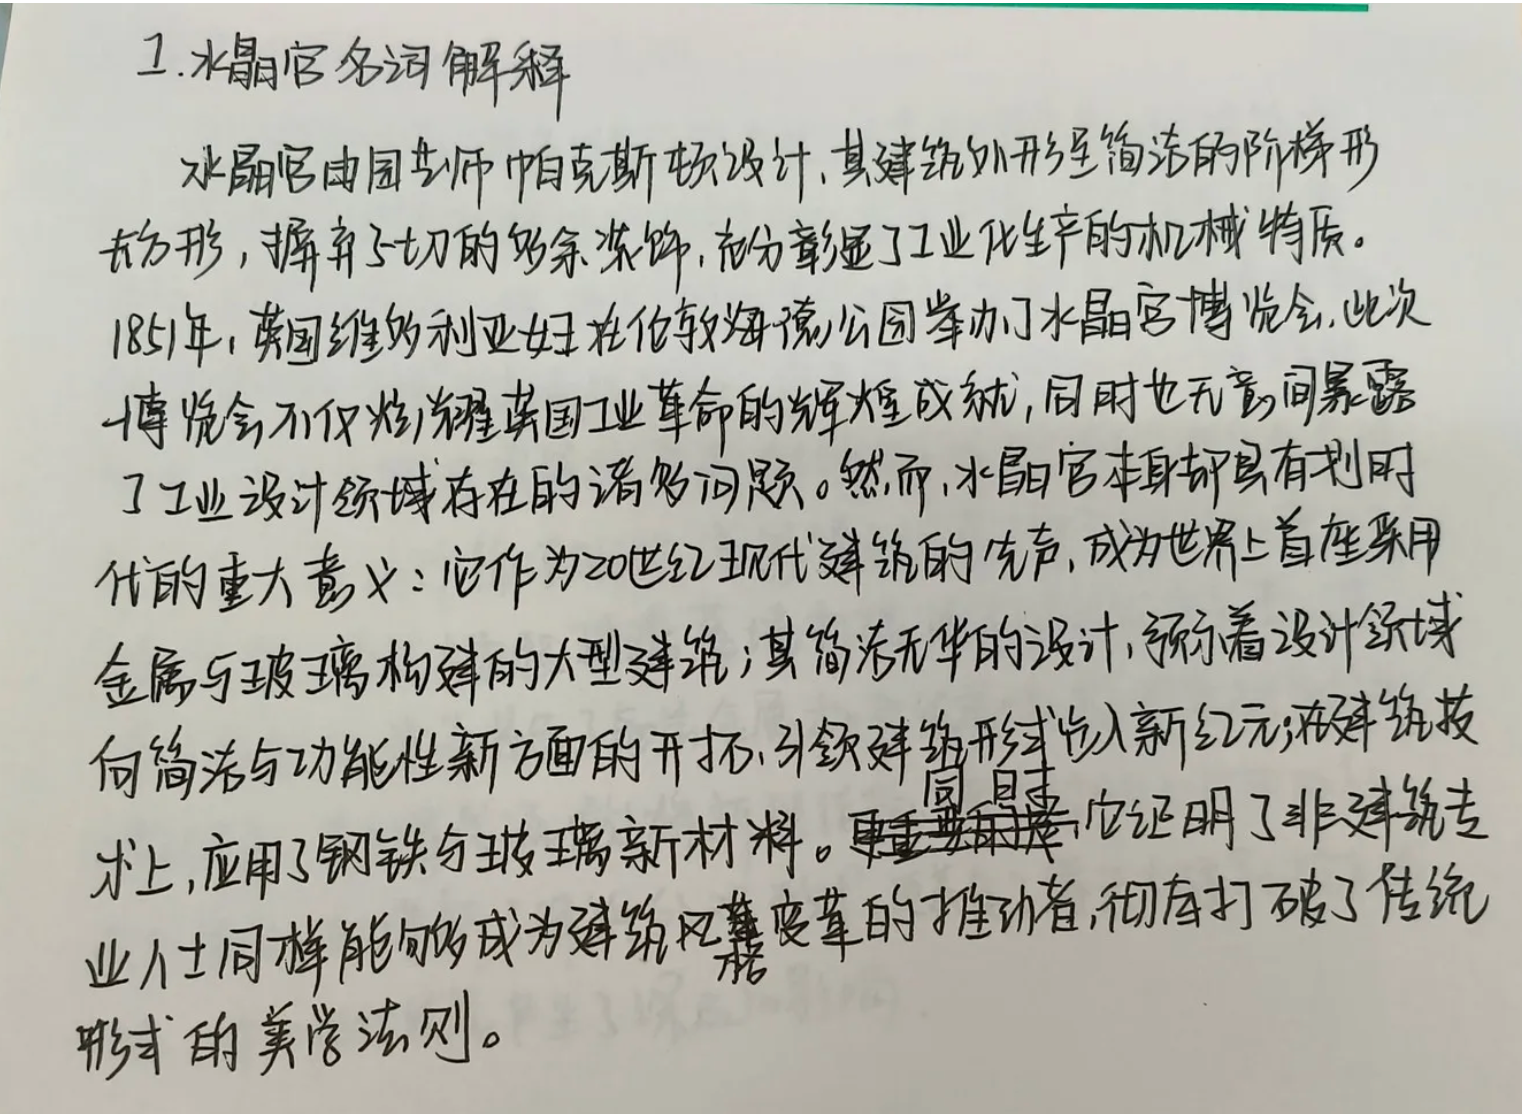 1.水晶宫名词解释
水晶宫由园艺师帕克斯顿设计,其建筑外形呈简洁的阶梯形
长方形,摒弃了一切的多余装饰,充分彰显了工业化生产的机械特质。
1851年,英国维多利亚女王在伦敦海德公园举办了水晶宫博览会,此次
博览会不仅炫耀英国工业革命的辉煌成就,同时也无意间暴露
了工业设计领域存在的诸多问题。然而,水晶宫本身却具有划时
代的重大意义:它作为20世纪现代建筑的先声,成为世界上首座采用
金属与玻璃构建的大型建筑;其简洁无华的设计,预示着设计领域
向简洁与功能性新方面的开拓,引领建筑形式步入新纪元;在建筑技
术上,应用了钢铁与玻璃新材料。同时,它证明了非建筑专
业人士同样能够成为建筑风格变革的推动者,彻底打破了传统
形式的美学法则。